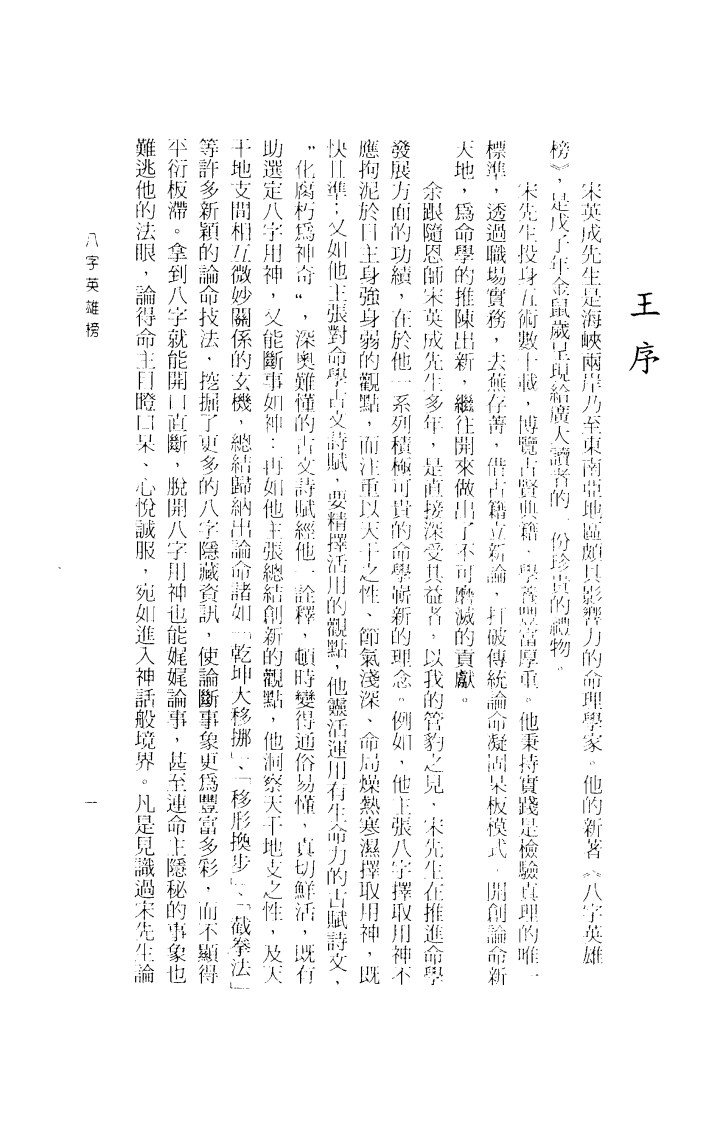 王序
宋英成先生是海峽兩岸乃至東南亞地區頗具影響力的命理學家。他的新著《八字英雄
榜》，是戊子年金鼠歲呈現給廣大讀者的一份珍貴的禮物。
宋先生投身五術數十載，博覽古賢典籍、學養豐富厚重。他秉持實踐是檢驗真理的唯一
標準，透過職場實務，去蕪存菁，借古籍立新論，打破傳統論命凝固呆板模式，開創論命新
天地，爲命學的推陳出新，繼往開來做出了不可磨滅的貢獻。
余跟隨恩師宋英成先生多年，是直接深受其益者。以我的管豹之見，宋先生在推進命學
發展方面的功績，在於他一系列積極可貴的命學嶄新的理念。例如，他主張八字擇取用神不
應拘泥於日主身強身弱的觀點，而注重以天干之性、節氣淺深、命局燥熱寒濕擇取用神，既
快且準；又如他主張對命學古文詩賦，要精擇活用的觀點，他靈活運用有生命力的古賦詩文，
”化腐朽爲神奇“，深奧難懂的古文詩賦經他一詮釋，頓時變得通俗易懂，真切鮮活，既有
助選定八字用神，又能斷事如神；再如他主張總結創新的觀點，他洞察天干地支之性，及天
干地支間相互微妙關係的玄機，總結歸納出論命諸如「乾坤大移挪」、「移形換步」、「截拳法」
等許多新穎的論命技法，挖掘了更多的八字隱藏資訊，使論斷事象更爲豐富多彩，而不顯得
平衍板滯。拿到八字就能開口直斷，脫開八字用神也能娓娓論事，甚至連命主隱秘的事象也
難逃他的法眼，論得命主目瞪口呆、心悅誠服，宛如進入神話般境界。凡是見識過宋先生論
八字英雄榜
一